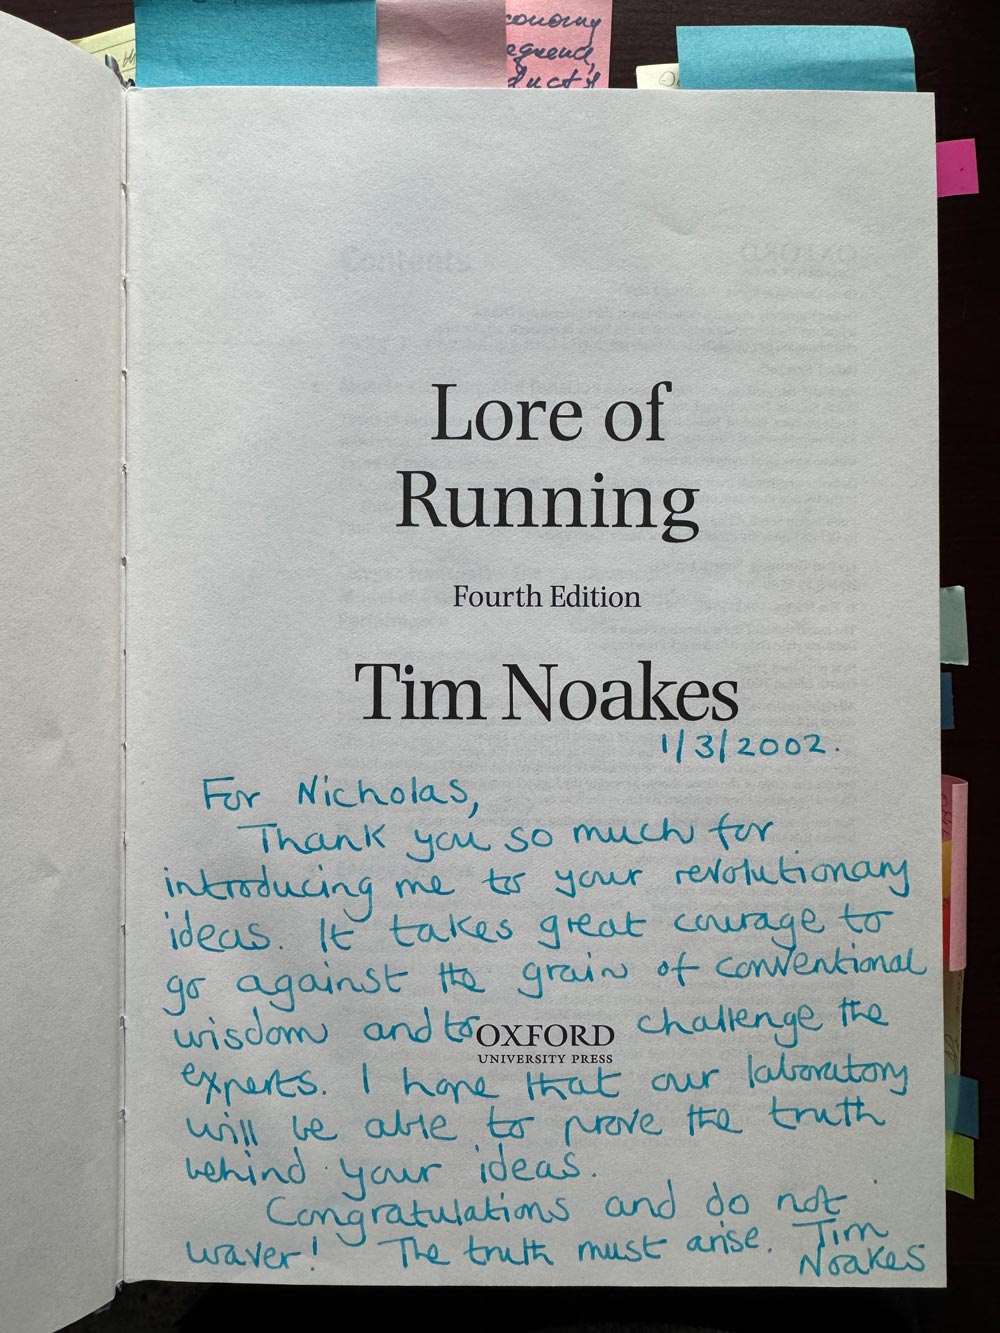 conomy
equence,
Lore of
Running
Fourth Edition
Tim Noakes
1/3/2002.
For Nicholas,
Thank you so much for
introducing me to your revolutionary
ideas. It takes great courage to
go against the grain of conventional
wisdom and to challenge the
OXFORD
UNIVERSITY PRESS
experts. I hope that our laboratory
will be able to prove the truth
behind your ideas.
Congratulations and do not
waver! The truth must arise. Tim
Noakes